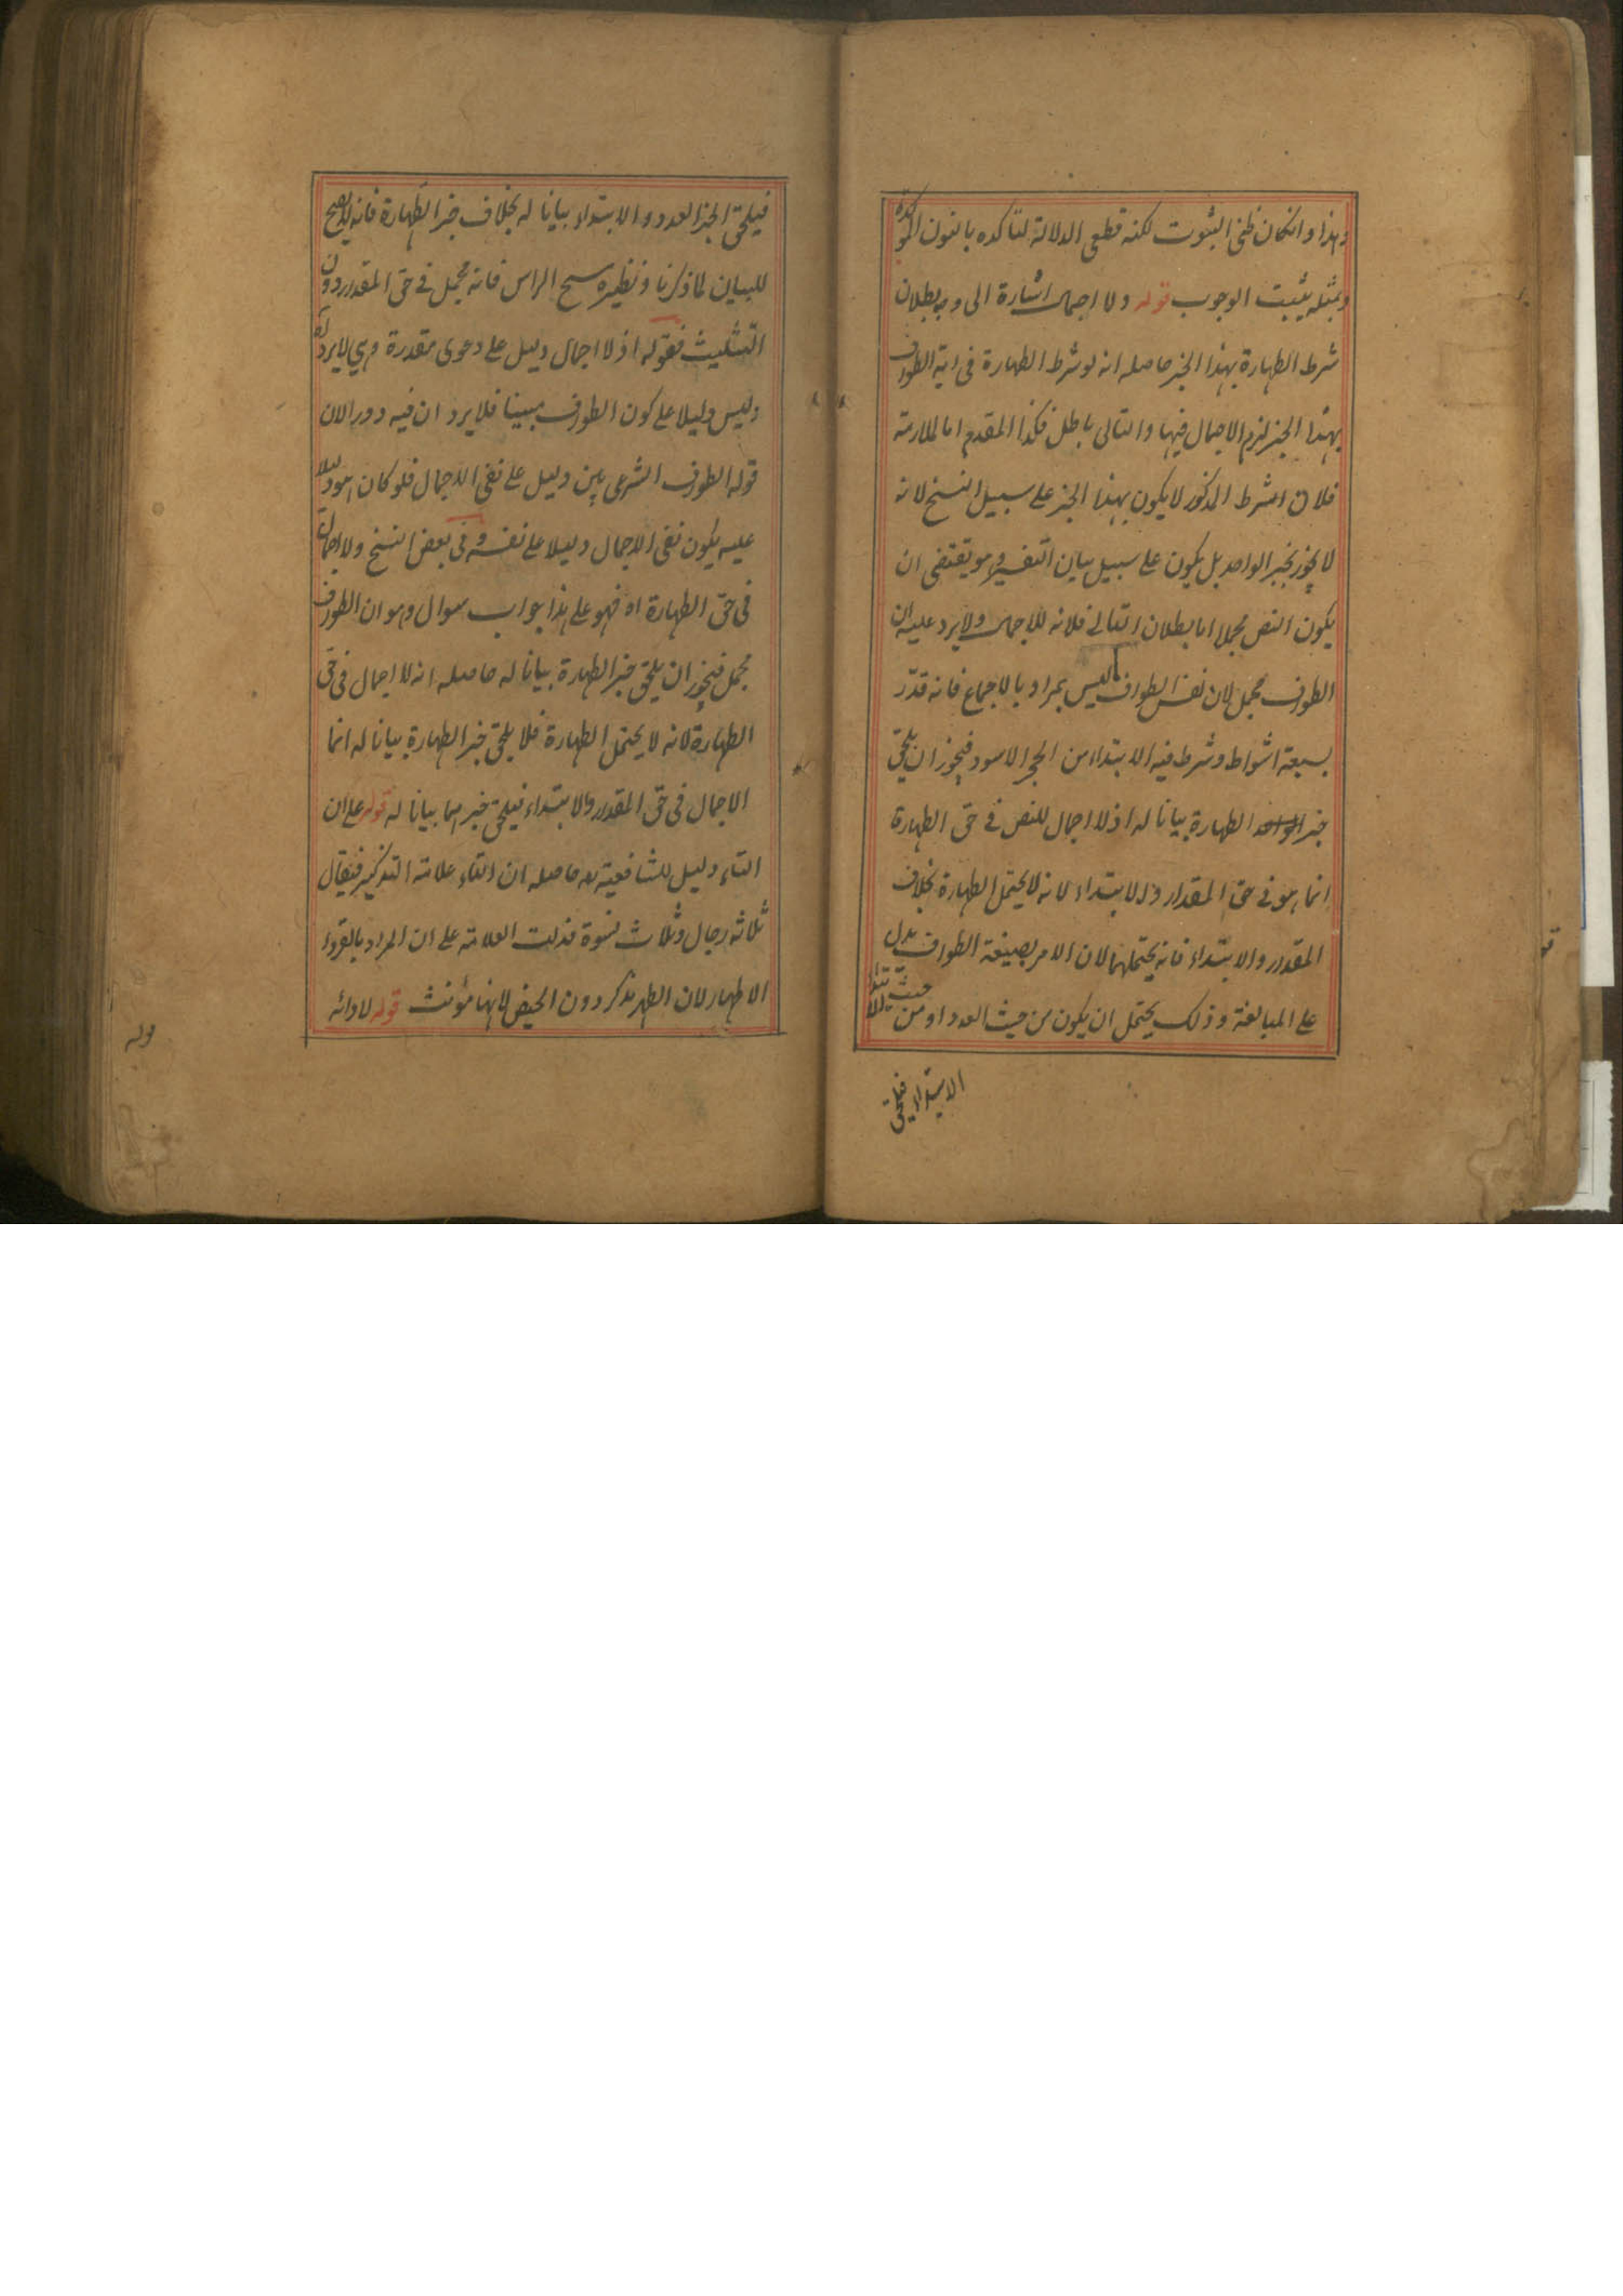 وهذا وانكان ظني الثبوت لكنه قطعي الدلالة لتاكده بالنون المؤكدة
وبمثله يثبت الوجوب قوله ولا اجمال اشارة الى وجه بطلان
شرط الطهارة بهذا الخبر حاصله انه لو شرط الطهارة في اية الطواف
بهذا الخبر لزم الاجمال فيها والتالي باطل فكذا المقدم اما الملازمة
فلان الشرط المذكور لا يكون بهذا الخبر على سبيل النسخ لانه
لا يجوز بخبر الواحد بل يكون على سبيل بيان التفسير وهو يقتضي ان
يكون النص مجملا اما بطلان التالي فلانه لا اجمال ولا يرد عليه ان
الطواف مجمل لان نفس الطواف ليس بمراد بالاجماع فانه قدّر
بسبعة اشواط وشرط فيه الابتداء من الحجر الاسود فيجوز ان يلحق
خبر الطهارة بيانا له اذ لا اجمال للنص في حق الطهارة
انما هو في حق المقدار والابتداء لانه لا يحتمل الطهارة بخلاف
المقدار والابتداء فانه يحتملهما لان الامر بصيغة الطواف يدل
على المبالغة وذلك يحتمل ان يكون من حيث العدد او من حيث
الابتداء فيلحق
فيلحق الخبر العدد والابتداء بيانا له بخلاف خبر الطهارة فانه لا يصح
للبيان لما ذكرنا ونظيره مسح الراس فانه مجمل في حق المقدار دون
التثليث فقوله اذ لا اجمال دليل على دعوى مقدرة وهي لا يرد
وليس دليلا على كون الطواف مبينا فلا يرد ان فيه دور الان
قوله الطواف الشرعي بين دليل على نفي الاجمال فلو كان هو دليلا
عليه يكون نفي الاجمال دليلا على نفسه وفي بعض النسخ ولا اجمال
في حق الطهارة اه فهو على هذا جواب سوال وهو ان الطواف
مجمل فيجوز ان يلحق خبر الطهارة بيانا له حاصله انه لا اجمال في حق
الطهارة لانه لا يحتمل الطهارة فلا يلحق خبر الطهارة بيانا له انما
الاجمال في حق المقدار والابتداء فيلحق خبرهما بيانا له قوله على ان
التاء دليل للشافعية حاصله ان التاء علامة التذكير فيقال
ثلاثة رجال وثلاث نسوة فدلت العلامة على ان المراد بالقروء
الاطهار لان الطهر مذكر دون الحيض لانها مؤنث قوله لادائه